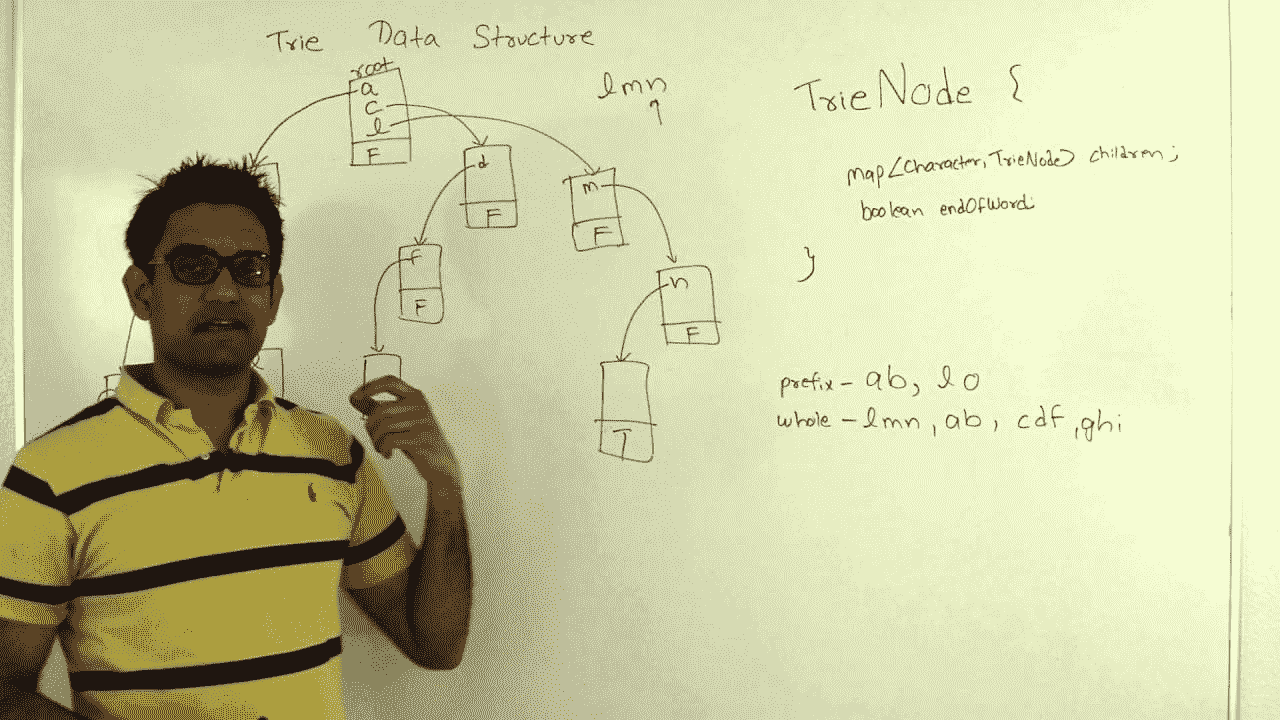 Trie Data Structure
root
a
c
l
F
lmn
d
F
m
F
f
F
n
F
T
TrieNode {
map<Character, TrieNode> children;
boolean endOfWord;
}
prefix - ab, lo
whole - lmn, ab, cdf, ghi